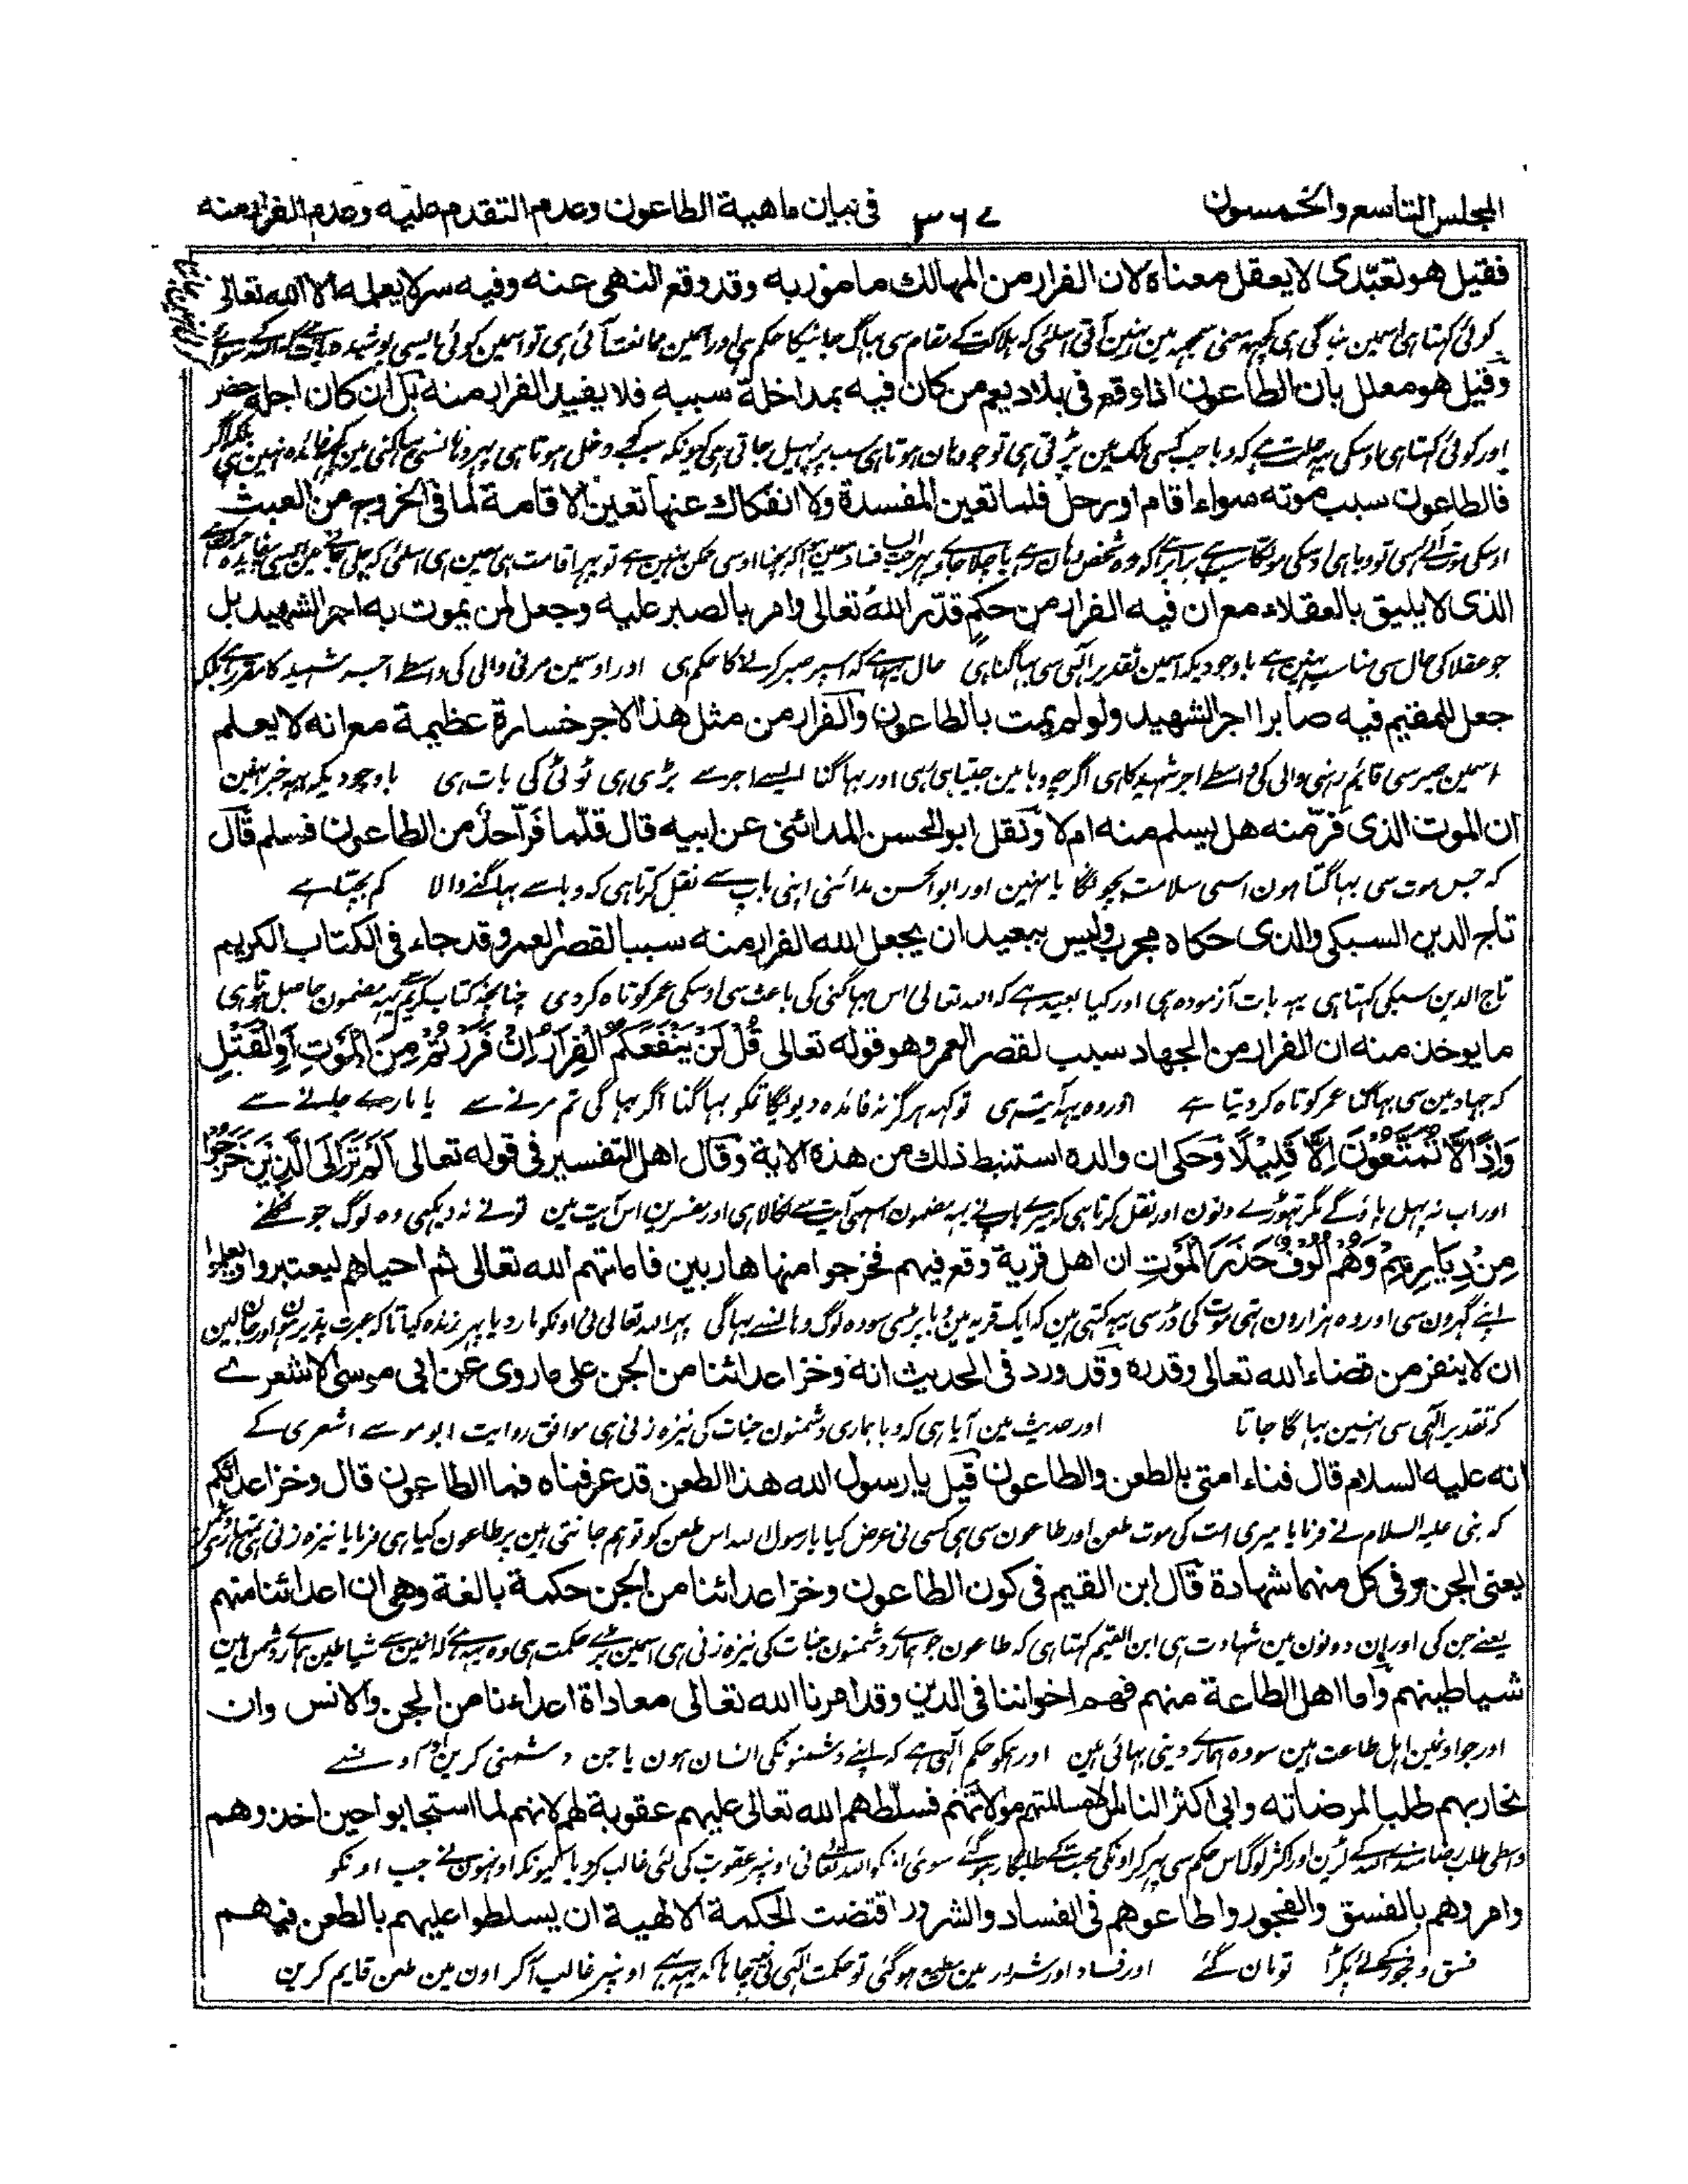 المجلس التاسع والخمسون ٣٦٧ فى بيان ماهية الطاعون وعدم التقدم عليه وعدم الفرار منه
فقيل هو تعبّدى لا يعقل معناه لان الفرار من المهالك مامور به وقد وقع النهى عنه وفيه سر لا يعلمه الا الله تعالى
کوئی کہتا ہی اسمین بندگی ہی کچہہ معنی سمجہہ مین نہین آتی اسلئی کہ ہلاکت کے مقام سی بہاگ جانیکا حکم ہی اور اسمین ممانعت آئی ہی تو اسمین کوئی ایسی پوشیدہ بات ہے کہ اللہ کے سوائے
وقيل هو معلل بان الطاعون اذا وقع فى بلاد يعم من كان فيه بمداخلة سببه فلا يفيد الفرار منه بل ان كان اجله حضر
اور کوئی کہتا ہی اوسکی یہہ علت ہے کہ وبا جب کسی ملک مین پڑتی ہی تو جو وہان ہوتا ہی سب پر پہیل جاتی ہی کیونکہ سبکے دخل ہوتا ہی پہر وہانسی بہاگنی مین کچہہ فائدہ نہین ہی بلکہ اگر
فالطاعون سبب موته سواء اقام او رحل فلما تعين المفسدة ولا انفكاك عنها تعين الاقامة لما فى الخروج من العبث
اوسکی موت آئی ہی تو وبا ہی اوسکی موتکا سبب ہے برابر ہی کہ وہ شخص وہان رہے یا چلا جاوے پہر جب
الذى لا يليق بالعقلاء مع ان فيه الفرار من حكم قدّر الله تعالى وامر بالصبر عليه وجعل لمن يموت به اجر الشهيد بل
جو عقلا کی حال سی مناسب نہین ہے باوجودیکہ اسمین تقدیر الٰہی سی بہاگنا ہی حال یہہ ہے کہ اسپر صبر کرنے کا حکم ہی اور اوسمین مرنی والی کی واسطے اجر شہید کا مقرر ہے بلکہ
جعل للمقيم فيه صابرا اجر الشهيد ولو لم يمت بالطاعون والفرار من مثل هذا الاجر خسارة عظيمة مع انه لا يعلم
اسمین صبر سی قایم رہنی والی کی واسطے اجر شہید کا ہی اگرچہ وبا مین جیتا ہی رہی اور بہاگنا ایسے اجر سے بڑی ہی ٹوٹی کی بات ہی باوجودیکہ یہہ خبر نہین
ان الموت الذى فرّ منه هل يسلم منه ام لا ونقل ابو الحسن المدائنى عن ابيه قال قلّما فرّ احد من الطاعون فسلم قال
کہ جس موت سی بہاگتا ہون اسسی سلامت بچونگا یا نہین اور ابو الحسن مدائنی اپنی باپ سے نقل کرتا ہی کہ وبا سے بہاگنے والا کم بچتا ہے
تاج الدين السبكى والذى حكاه مجرب وليس ببعيد ان يجعل الله الفرار منه سببا لقصر العمر وقد جاء فى الكتاب الكريم
تاج الدین سبکی کہتا ہی یہہ بات آزمودہ ہی اور کیا بعید ہے کہ اللہ تعالی اس بہاگنی کی باعث سی اوسکی عمر کوتاہ کردی چنانچہ کتاب کریم سے یہہ مضمون حاصل ہوتا ہی
ما يوخذ منه ان الفرار من الجهاد سبب لقصر العمر وهو قوله تعالى قُلْ لَنْ يَنْفَعَكُمُ الْفِرَارُ اِنْ فَرَرْتُمْ مِنَ الْمَوْتِ اَوِ الْقَتْلِ
کہ جہاد مین سی بہاگنا عمر کوتاہ کردیتا ہے اور وہ یہہ آیت ہی توکہہ ہرگز نہ فائدہ دیویگا تمکو بہاگنا اگر بہاگی تم مرنے سے یا مارے جانے سے
وَاِذًا لَّا تُمَتَّعُونَ اِلَّا قَلِيْلًا وحكى ان والده استنبط ذلك من هذه الاية وقال اهل التفسير فى قوله تعالى اَلَمْ تَرَ اِلَى الَّذِيْنَ خَرَجُوْا
اور اب نہ پہل پاؤگے مگر تہوڑے دنون اور نقل کرتا ہی کہ میرے باپ نے یہہ مضمون اسہی آیت سے نکالا ہی اور مفسرین اس آیت مین تونے نہ دیکہی وہ لوگ جو نکلے
مِنْ دِيَارِهِمْ وَهُمْ اُلُوْفٌ حَذَرَ الْمَوْتِ ان اهل قرية وقع فيهم فخرجوا منها هاربين فاماتهم الله تعالى ثم احياهم ليعتبروا ويعلموا
اپنے گہرون سی اور وہ ہزارون تہی موت کی ڈر سی یہہ کہتی ہین کہ ایک قریہ مین وبا پڑی سو وہ لوگ وہانسے بہاگی پہر اللہ تعالی نی اونکو مار دیا پہر زندہ کیا تاکہ عبرت پذیر ہون اور جان لین
ان لا ينفر من قضاء الله تعالى وقدره وقد ورد فى الحديث انه وخز اعدائنا من الجن على ما روى عن ابى موسى الاشعرے
کہ تقدیر الٰہی سی نہین بہاگا جاتا اور حدیث مین آیا ہی کہ وبا ہماری دشمنون جنات کی نیزہ زنی ہی موافق روایت ابو موسے اشعری کے
انه عليه السلام قال فناء امتى بالطعن والطاعون قيل يا رسول الله هذا الطعن قد عرفناه فما الطاعون قال وخز اعدائكم
کہ نبی علیہ السلام نے فرمایا میری امت کی موت طعن اور طاعون سی ہی کسی نی عرض کیا یا رسول اللہ اس طعن کو تو ہم جانتی ہین پر طاعون کیا ہی فرمایا نیزہ زنی
يعنى الجن وفى كل منهما شهادة قال ابن القيم فى كون الطاعون وخز اعدائنا من الجن حكمة بالغة وهى ان اعدائنا منهم
یعنے جن کی اور ان دونون مین شہادت ہی ابن القیم کہتا ہی کہ طاعون جو ہمارے دشمنون جنات کی نیزہ زنی ہی اسمین بڑے حکمت ہی وہ یہہ ہے کہ انمین سے شیاطین ہمارے دشمن ہین
شياطينهم واما اهل الطاعة منهم فهم اخواننا فى الدين وقد امرنا الله تعالى معاداة اعداءنا من الجن والانس وان
اور جو اونمین اہل طاعت ہین سو وہ ہمارے دینی بہائی ہین اور ہمکو حکم الٰہی ہے کہ اپنے دشمنونکی انسان ہون یا جن دشمنی کرین اور اونسے
نحاربهم طلبا لمرضاته وابى اكثر الناس الا مسالمتهم وموالاتهم فسلّطهم الله تعالى عليهم عقوبة لهم لانهم لما استجابوا حين اخذوهم
واسطی طلب رضامندے اللہ کے لڑین اور اکثر لوگ اس حکم سی پہر کر اونکی محبت کے طلبگار ہوگئے سو انکو اللہ تعالی نی اونپر عقوبت کی لئی غالب کردیا کیونکہ اونہون نے جب اونکو
وامروهم بالفسق والفجور واطاعوهم فى الفساد والشرور اقتضت الحكمة الالهية ان يسلطوا عليهم بالطعن فيهم
فسق وفجور کیلئے پکڑا تو مان گئے اور فساد اور شرور مین مطیع ہوگئی تو حکمت الٰہی نی چاہا کہ یہہ اونپر غالب آکر اون مین طعن قایم کرین